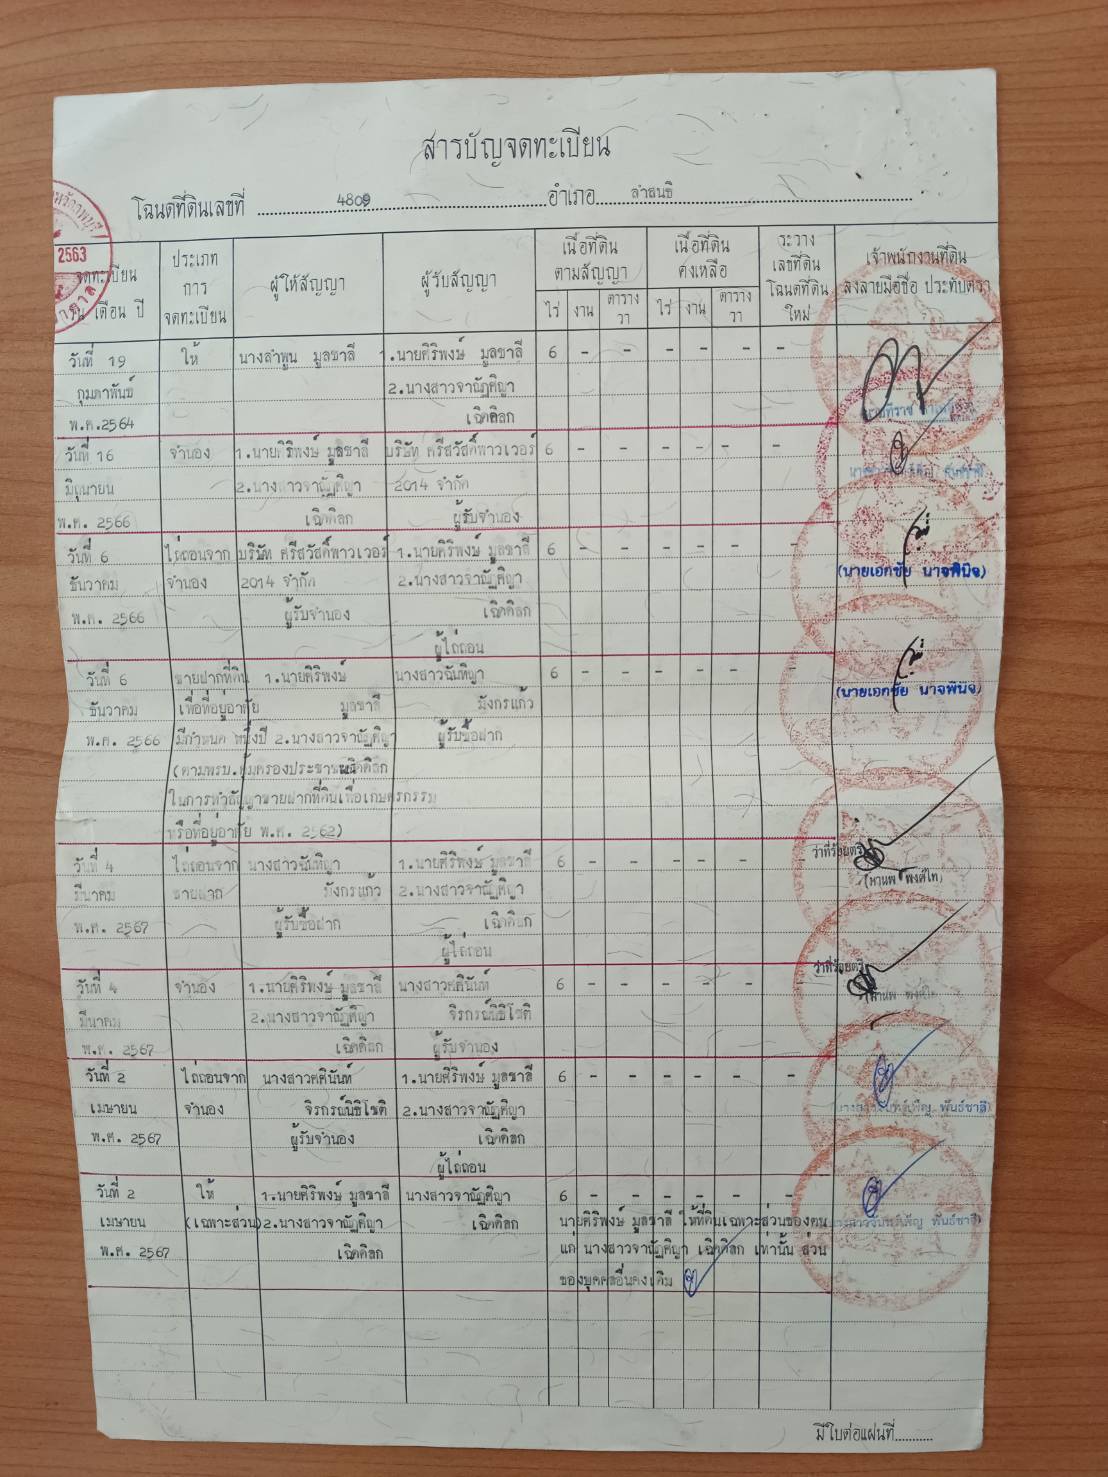 สารบัญจดทะเบียน
โฉนดที่ดินเลขที่ 4809 อำเภอ ลำสนธิ
2563
จดทะเบียน วัน เดือน ปี
ประเภท การ จดทะเบียน
ผู้ให้สัญญา
ผู้รับสัญญา
เนื้อที่ดิน ตามสัญญา
ไร่ งาน ตาราง วา
เนื้อที่ดิน คงเหลือ
ไร่ งาน ตาราง วา
ระวาง เลขที่ดิน โฉนดที่ดิน ใหม่
เจ้าพนักงานที่ดิน ลงลายมือชื่อ ประทับตรา
วันที่ 19 ให้ นางลำพูน มูลชาลี 1.นายศิริพงษ์ มูลชาลี 6 - - - - - -
กุมภาพันธ์ 2.นางสาวจาณัฏศิญา
พ.ศ.2564 เฉิดดิลก
วันที่ 16 จำนอง 1.นายศิริพงษ์ มูลชาลี บริษัท ศรีสวัสดิ์พาวเวอร์ 6 - - - - - -
มิถุนายน 2.นางสาวจาณัฏศิญา 2014 จำกัด
พ.ศ. 2566 เฉิดดิลก ผู้รับจำนอง
วันที่ 6 ไถ่ถอนจาก บริษัท ศรีสวัสดิ์พาวเวอร์ 1.นายศิริพงษ์ มูลชาลี 6 - - - - - -
(นายเอกชัย นาจพินิจ)
ธันวาคม จำนอง 2014 จำกัด 2.นางสาวจาณัฏศิญา
พ.ศ. 2566 ผู้รับจำนอง เฉิดดิลก
ผู้ไถ่ถอน
วันที่ 6 ขายฝากที่ดิน 1.นายศิริพงษ์ นางสาวฉันทิญา 6 - - - - - -
(นายเอกชัย นาจพินิจ)
ธันวาคม เพื่อที่อยู่อาศัย มูลชาลี มังกรแก้ว
พ.ศ. 2566 มีกำหนด หนึ่งปี 2.นางสาวจาณัฏศิญา ผู้รับซื้อฝาก
(ตามพรบ.คุ้มครองประชาชน เฉิดดิลก
ในการทำสัญญาขายฝากที่ดินเพื่อเกษตรกรรม
หรือที่อยู่อาศัย พ.ศ. 2562)
วันที่ 4 ไถ่ถอนจาก นางสาวฉันทิญา 1.นายศิริพงษ์ มูลชาลี 6 - - - - - - ว่าที่ร้อยตรี
มีนาคม ขายฝาก มังกรแก้ว 2.นางสาวจาณัฏศิญา
พ.ศ. 2567 ผู้รับซื้อฝาก เฉิดดิลก
ผู้ไถ่ถอน
วันที่ 4 จำนอง 1.นายศิริพงษ์ มูลชาลี นางสาวศศินันท์ 6 - - - - - - ว่าที่ร้อยตรี
มีนาคม 2.นางสาวจาณัฏศิญา จิรกรณ์นิธิโชติ
พ.ศ. 2567 เฉิดดิลก ผู้รับจำนอง
วันที่ 2 ไถ่ถอนจาก นางสาวศศินันท์ 1.นายศิริพงษ์ มูลชาลี 6 - - - - - -
เมษายน จำนอง จิรกรณ์นิธิโชติ 2.นางสาวจาณัฏศิญา
พ.ศ. 2567 ผู้รับจำนอง เฉิดดิลก
ผู้ไถ่ถอน
วันที่ 2 ให้ 1.นายศิริพงษ์ มูลชาลี นางสาวจาณัฏศิญา 6 - - - - - -
เมษายน (เฉพาะส่วน) 2.นางสาวจาณัฏศิญา เฉิดดิลก นายศิริพงษ์ มูลชาลี ให้ที่ดินเฉพาะส่วนของตน
พ.ศ. 2567 เฉิดดิลก แก่ นางสาวจาณัฏศิญา เฉิดดิลก เท่านั้น ส่วน
ของบุคคลอื่นคงเดิม
มีใบต่อแผ่นที่